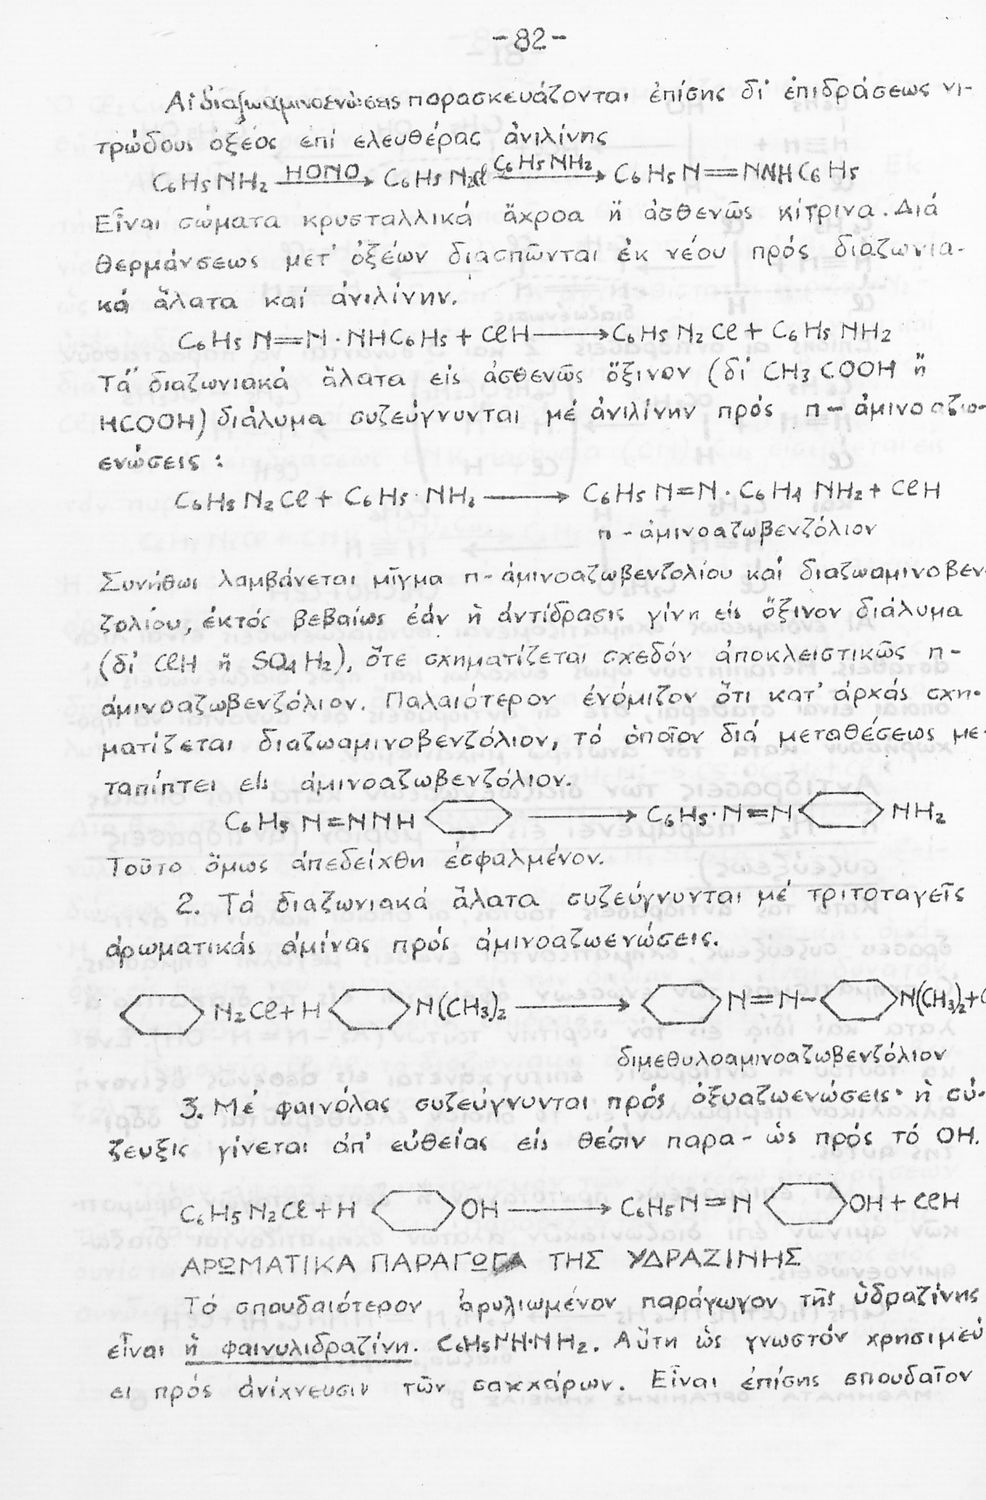 -82-
Αἱ διαζωαμινοενώσεις παρασκευάζονται ἐπίσης δι' ἐπιδράσεως νι-
τρώδους ὀξέος ἐπί ελευθέρας ἀνιλίνης
C6H5NH2 —HONO→ C6H5N2Cl —C6H5NH2→ C6H5N=NNHC6H5
Εἶναι σώματα κρυσταλλικά ἄχροα ἤ ἀσθενῶς κίτρινα. Διά
θερμάνσεως μετ' ὀξέων διασπῶνται ἐκ νέου πρός διαζωνια-
κά ἅλατα καί ἀνιλίνην.
C6H5N=N·NHC6H5 + ClH → C6H5N2Cl + C6H5NH2
Τά διαζωνιακά ἅλατα εἰς ἀσθενῶς ὄξινον (δι' CH3COOH ἤ
HCOOH) διάλυμα συζεύγνυνται μέ ἀνιλίνην πρός π-ἀμινοαζω-
ενώσεις :
C6H5N2Cl + C6H5·NH2 → C6H5N=N·C6H4NH2 + ClH
π-ἀμινοαζωβενζόλιον
Συνήθως λαμβάνεται μῖγμα π-ἀμινοαζωβενζολίου καί διαζωαμινοβεν-
ζολίου, ἐκτός βεβαίως ἐάν ἡ ἀντίδρασις γίνη εἰς ὄξινον διάλυμα
(δι' ClH ἤ SO4H2), ὅτε σχηματίζεται σχεδόν ἀποκλειστικῶς π-
ἀμινοαζωβενζόλιον. Παλαιότερον ἐνόμιζον ὅτι κατ' ἀρχάς σχη-
ματίζεται διαζωαμινοβενζόλιον, τό ὁποῖον διά μεταθέσεως με-
ταπίπτει εἰς ἀμινοαζωβενζόλιον.
C6H5N=NNH → C6H5·N=N NH2
Τοῦτο ὅμως ἀπεδείχθη ἐσφαλμένον.
2. Τά διαζωνιακά ἅλατα συζεύγνυνται μέ τριτοταγεῖς
ἀρωματικάς ἀμίνας πρός ἀμινοαζωενώσεις.
N2Cl + H N(CH3)2 → N=N- N(CH3)2 + C
διμεθυλοαμινοαζωβενζόλιον
3. Μέ φαινόλας συζεύγνυνται πρός ὀξυαζωενώσεις· ἡ σύ-
ζευξις γίνεται ἀπ' εὐθείας εἰς θέσιν παρα- ὡς πρός τό OH.
C6H5N2Cl + H OH → C6H5N=N OH + ClH
ΑΡΩΜΑΤΙΚΑ ΠΑΡΑΓΩΓΑ ΤΗΣ ΥΔΡΑΖΙΝΗΣ
Τό σπουδαιότερον ἀρυλιωμένον παράγωγον τῆς ὑδραζίνης
εἶναι ἡ φαινυλιδραζίνη. C6H5NH·NH2. Αὕτη ὡς γνωστόν χρησιμεύ
ει πρός ἀνίχνευσιν τῶν σακχάρων. Εἶναι ἐπίσης σπουδαῖον